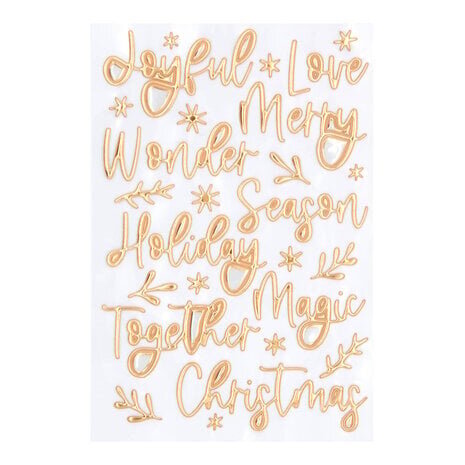 Joyful Love
Merry
Wonder
Season
Holiday
Magic
Together
Christmas